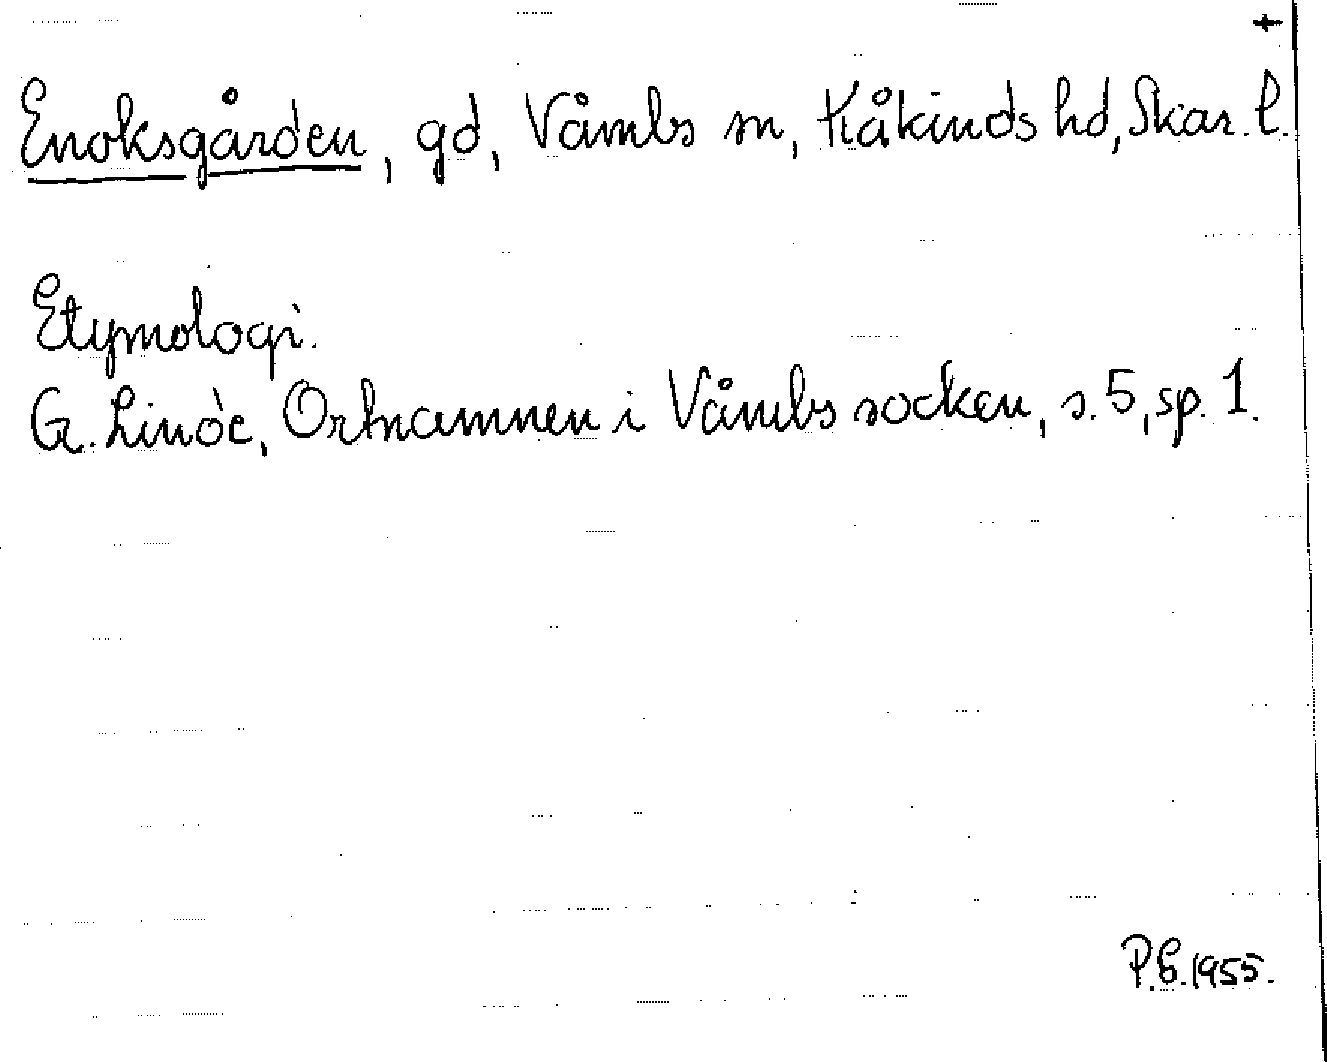 Enoksgården, gd, Våmbs sn, Kåkinds hd, Skar. l.
Etymologi.
G. Linde, Ortnamnen i Våmbs socken, s. 5, sp. 1.
P.E. 1955.